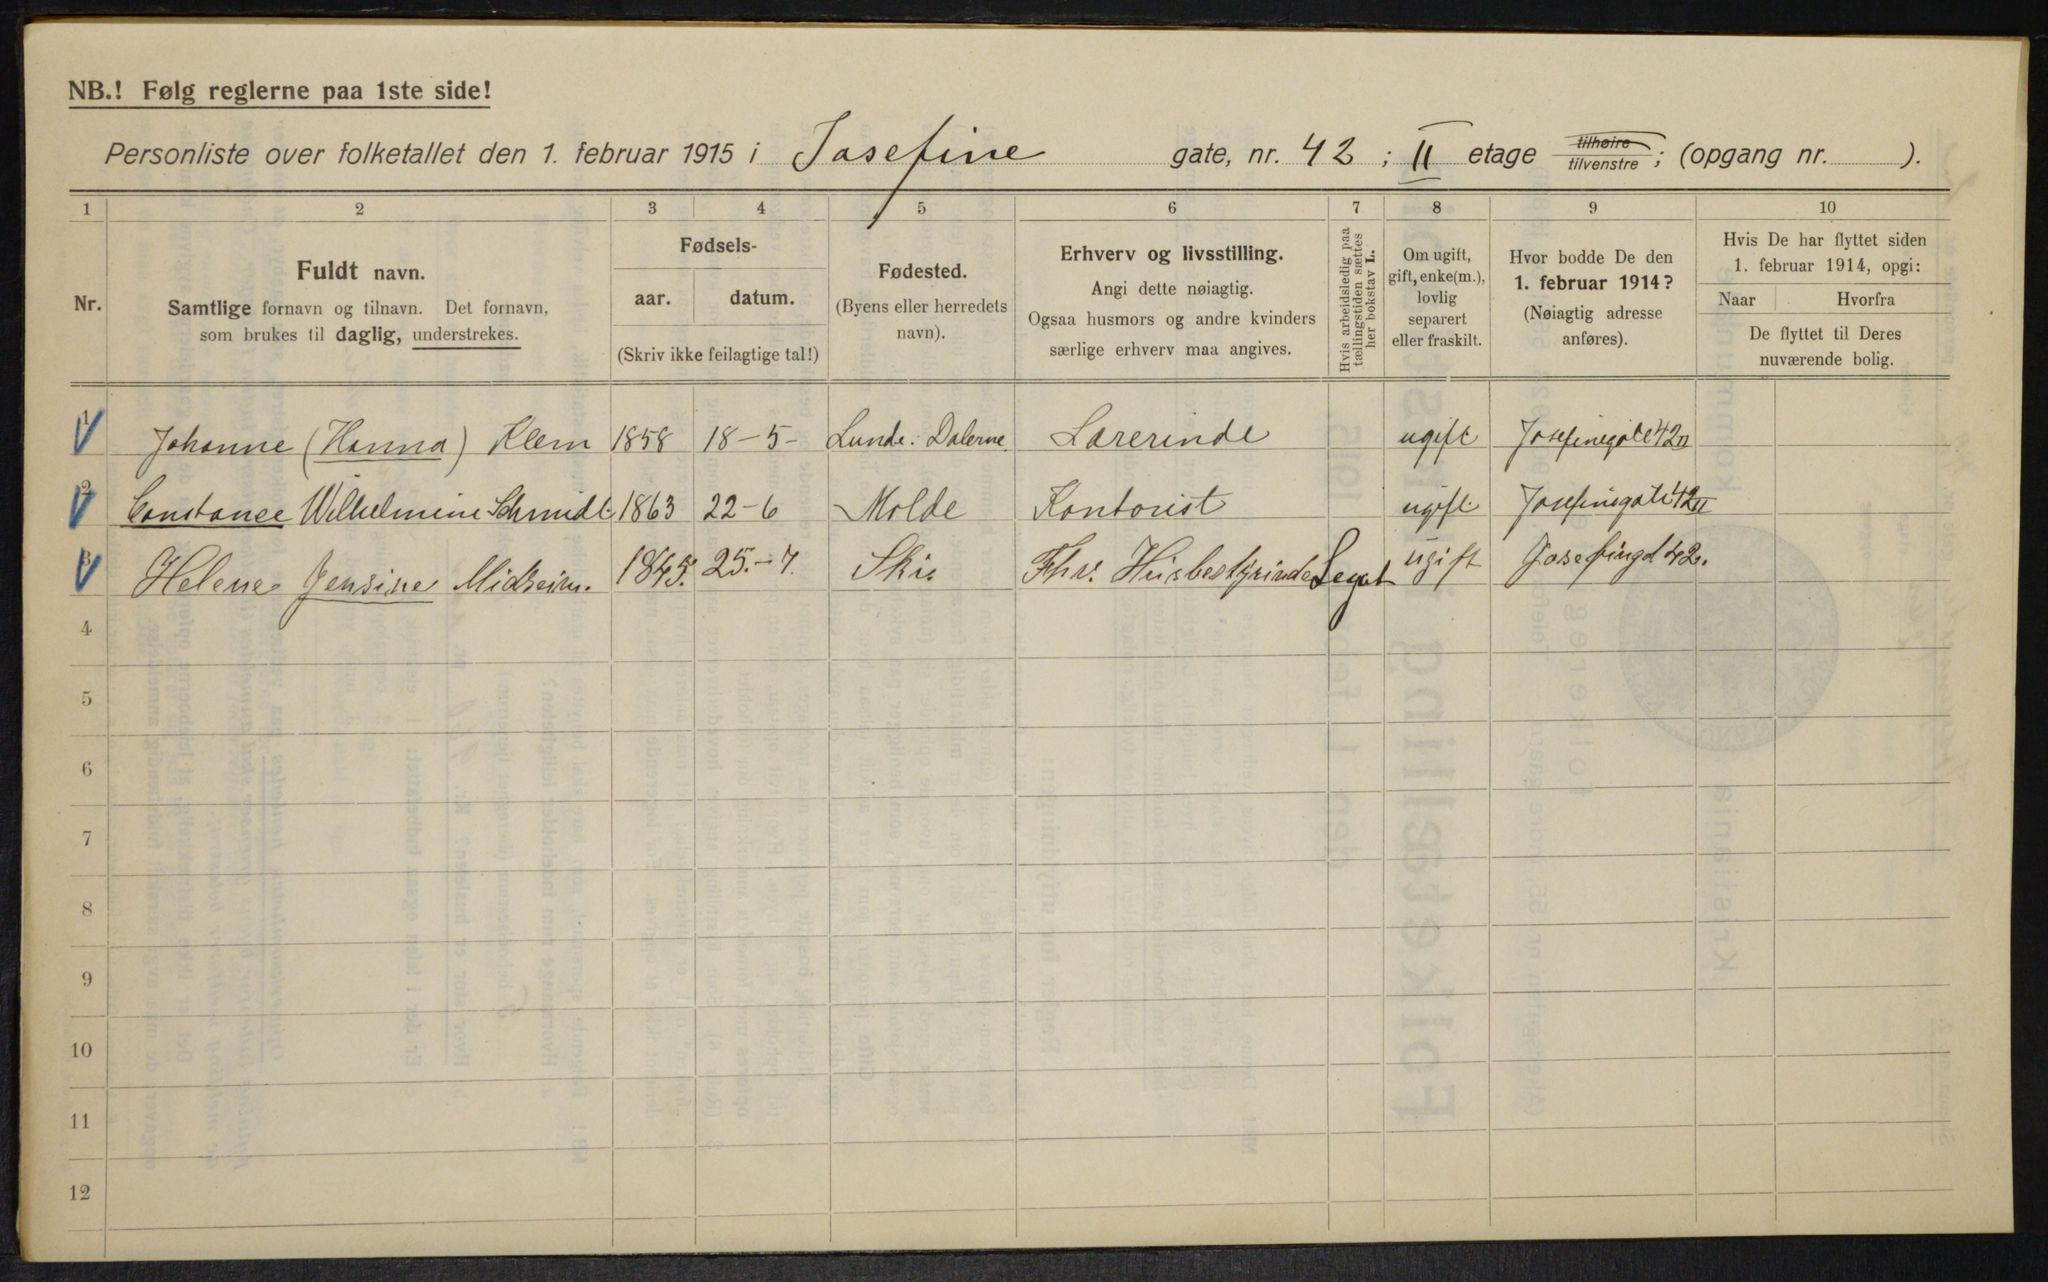 NB.! Følg reglerne paa 1ste side!
Personliste over folketallet den 1. februar 1915 i Josefine gate, nr. 42 ; II etage tilhøire tilvenstre ; (opgang nr. ).
1 2 3 4 5 6 7 8 9 10
Nr.
Fuldt navn.
Samtlige fornavn og tilnavn. Det fornavn,
som brukes til daglig, understrekes.
Fødsels-
aar. datum.
(Skriv ikke feilagtige tal!)
Fødested.
(Byens eller herredets
navn).
Erhverv og livsstilling.
Angi dette nøiagtig.
Ogsaa husmors og andre kvinders
særlige erhverv maa angives.
Hvis arbeidsledig paa
tællingstiden sættes
her bokstav L.
Om ugift,
gift, enke(m.),
lovlig
separert
eller fraskilt.
Hvor bodde De den
1. februar 1914?
(Nøiagtig adresse
anføres).
Hvis De har flyttet siden
1. februar 1914, opgi:
Naar Hvorfra
De flyttet til Deres
nuværende bolig.
1 Johanne (Hanna) Klem 1858 18-5- Lunde. Dalerne. Lærerinde ugift Josefinegate 42 II
2 Constance Wilhelmine Schmidt 1863 22-6 Molde Kontorist ugift Josefinegate 42 II
3 Helene Jensine 1845. 25.-7. Ski. Fhv. Husbestyrinde Legat ugift 42.
4
5
6
7
8
9
10
11
12